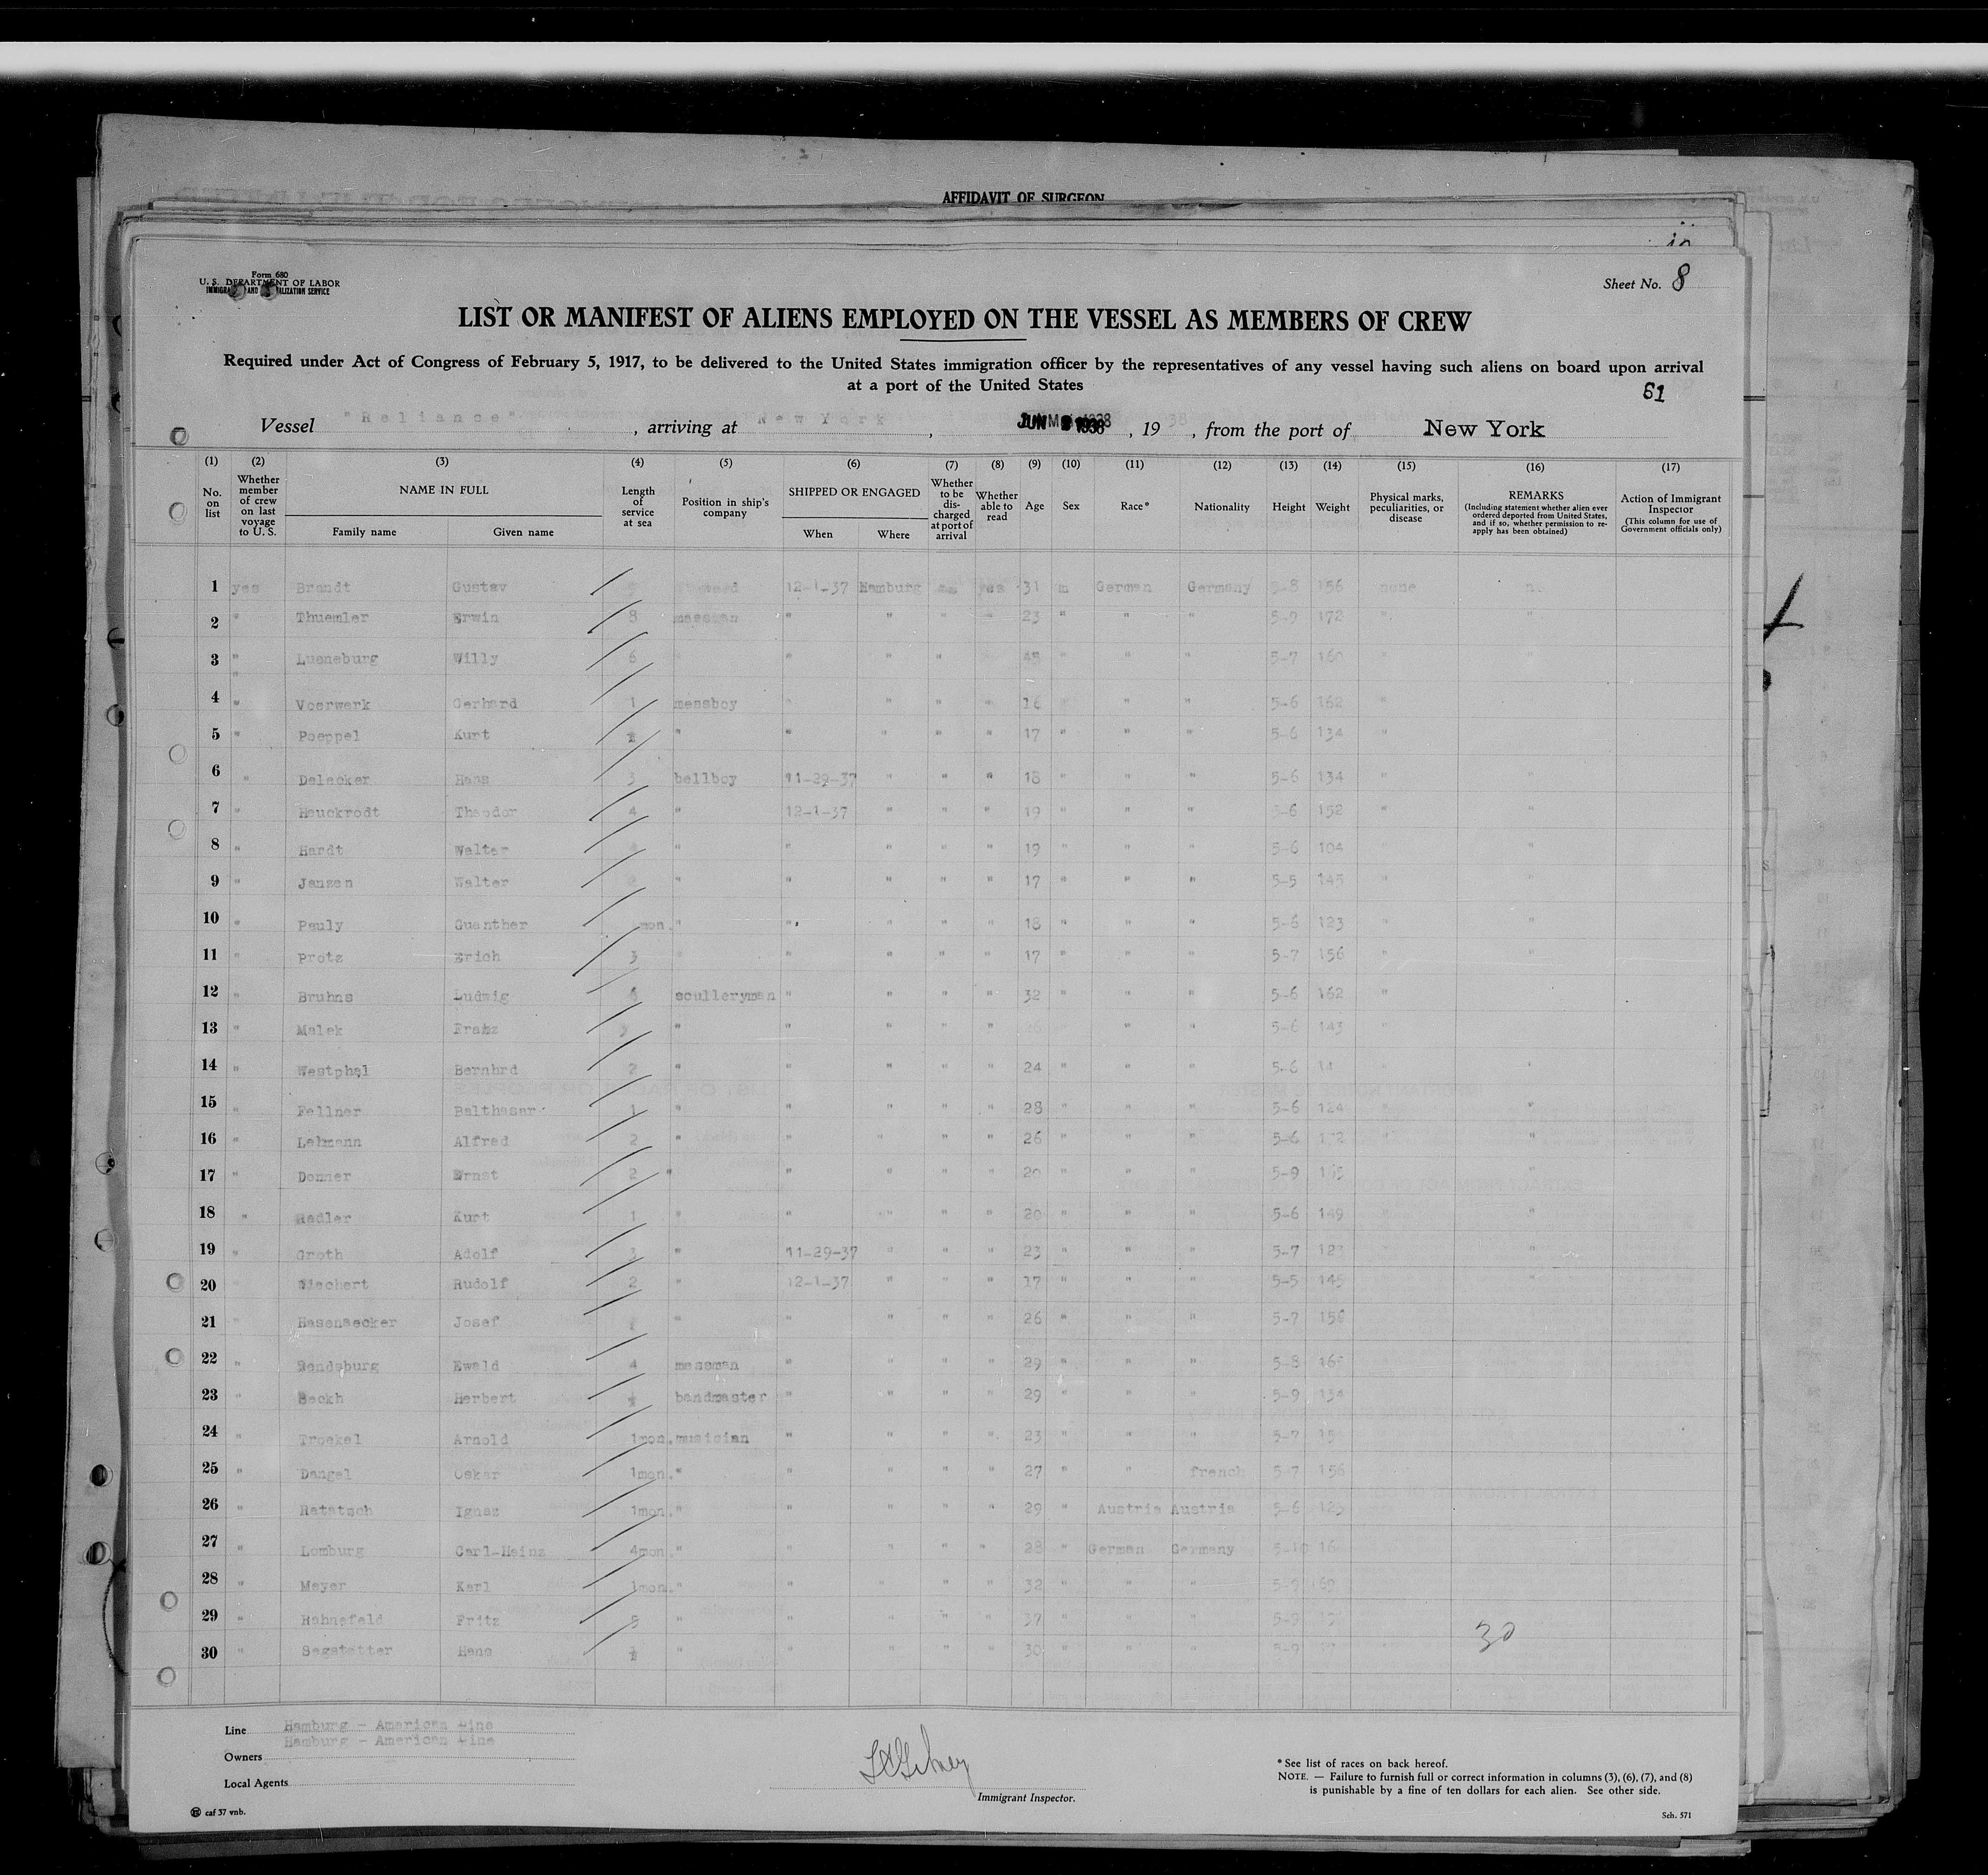 AFFIDAVIT OF SURGEON
Form 680
U. S. DEPARTMENT OF LABOR
IMMIGRATION AND NATURALIZATION SERVICE
Sheet No. 8
LIST OR MANIFEST OF ALIENS EMPLOYED ON THE VESSEL AS MEMBERS OF CREW
Required under Act of Congress of February 5, 1917, to be delivered to the United States immigration officer by the representatives of any vessel having such aliens on board upon arrival
at a port of the United States
51
Vessel "Reliance", arriving at New York, JUN 1938, 19 , from the port of New York
(1) (2) (3) (4) (5) (6) (7) (8) (9) (10) (11) (12) (13) (14) (15) (16) (17)
No. on list
Whether member of crew on last voyage to U. S.
NAME IN FULL
Family name Given name
Length of service at sea
Position in ship's company
SHIPPED OR ENGAGED
When Where
Whether to be discharged at port of arrival
Whether able to read
Age
Sex
Race*
Nationality
Height
Weight
Physical marks, peculiarities, or disease
REMARKS
(Including statement whether alien ever ordered deported from United States, and if so, whether permission to reapply has been obtained)
Action of Immigrant Inspector
(This column for use of Government officials only)
1 yes Brandt Gustav 12-1-37 Hamburg yes 31 m German Germany 5-8 156 none
2 " Thuemler Erwin 8 messman " " " " 23 " " " 5-9 172 " "
3 " Lueneburg Willy 6 " " " " 45 " " " 5-7 160 " "
4 " Voerwerk Gerhard 1 messboy " " " " 16 " " 5-6 162 "
5 " Poeppel Kurt " " " " " 17 " " " 5-6 134 "
6 " Delecker Hans 3 bellboy 11-29-37 " " " 18 " " " 5-6 134 "
7 " Heuckrodt Theodor 4 " 12-1-37 " " " 19 " " " 5-6 152 " "
8 " Hardt Walter " " " " " 19 " " " 5-6 104 " "
9 " Jansen Walter " " " " " 17 " " " 5-5 145 " "
10 " Pauly Guenther mon. " " " " " 18 " " " 5-6 123 " "
11 " Protz Erich 3 " " " " 17 " " " 5-7 156 " "
12 " Bruhns Ludwig 6 sculleryman " " " " 32 " " " 5-6 162 "
13 " Malek Franz " " " " " " " 5-6 143 "
14 " Westphal Bernhrd 2 " " " " " 24 " " " 5-6 "
15 " Fellner Balthasar 1 " " " " " 28 " " " 5-6 124 " "
16 " Lehmann Alfred 2 " " " " " 26 " " " 5-6 " "
17 " Donner Ernst 2 " " " " " 20 " " " 5-9 165 "
18 " Radler Kurt 1 " " " " " 20 " " " 5-6 149 " "
19 " Groth Adolf " 11-29-37 " " " 23 " " " 5-7 "
20 " Wiechert Rudolf 2 " 12-1-37 " " " 17 " " " 5-5 145 "
21 " Hasenaecker Josef " " " " " 26 " " " 5-7 156
22 " Rendsburg Ewald 4 messman " " " " 29 " " " 5-8
23 " Beckh Herbert bandmaster " " " " 29 " " " 5-9 134
24 " Troekel Arnold 1mon. musician " " " " 23 " " " 5-7
25 " Dangel Oskar 1mon. " " " " " 27 " " french 5-7 156
26 " Ratatsch Ignaz 1mon. " " " " " 29 " Austria Austria 5-6 123
27 " Lomburg Carl-Heinz 4mon. " " " " " 28 " German Germany 5-10
28 " Meyer Karl 1mon. " " " " " 32 " " " 5-9
29 " Hahnefeld Fritz 5 " " " " " 37 " " " 5-9
30 " Segstetter Hans " " " " " 30 " " " 5-9
30
Line Hamburg - American Line
Hamburg - American Line
Owners
Local Agents
Immigrant Inspector.
* See list of races on back hereof.
NOTE. — Failure to furnish full or correct information in columns (3), (6), (7), and (8)
is punishable by a fine of ten dollars for each alien. See other side.
caf 37 vnb.
Sch. 571